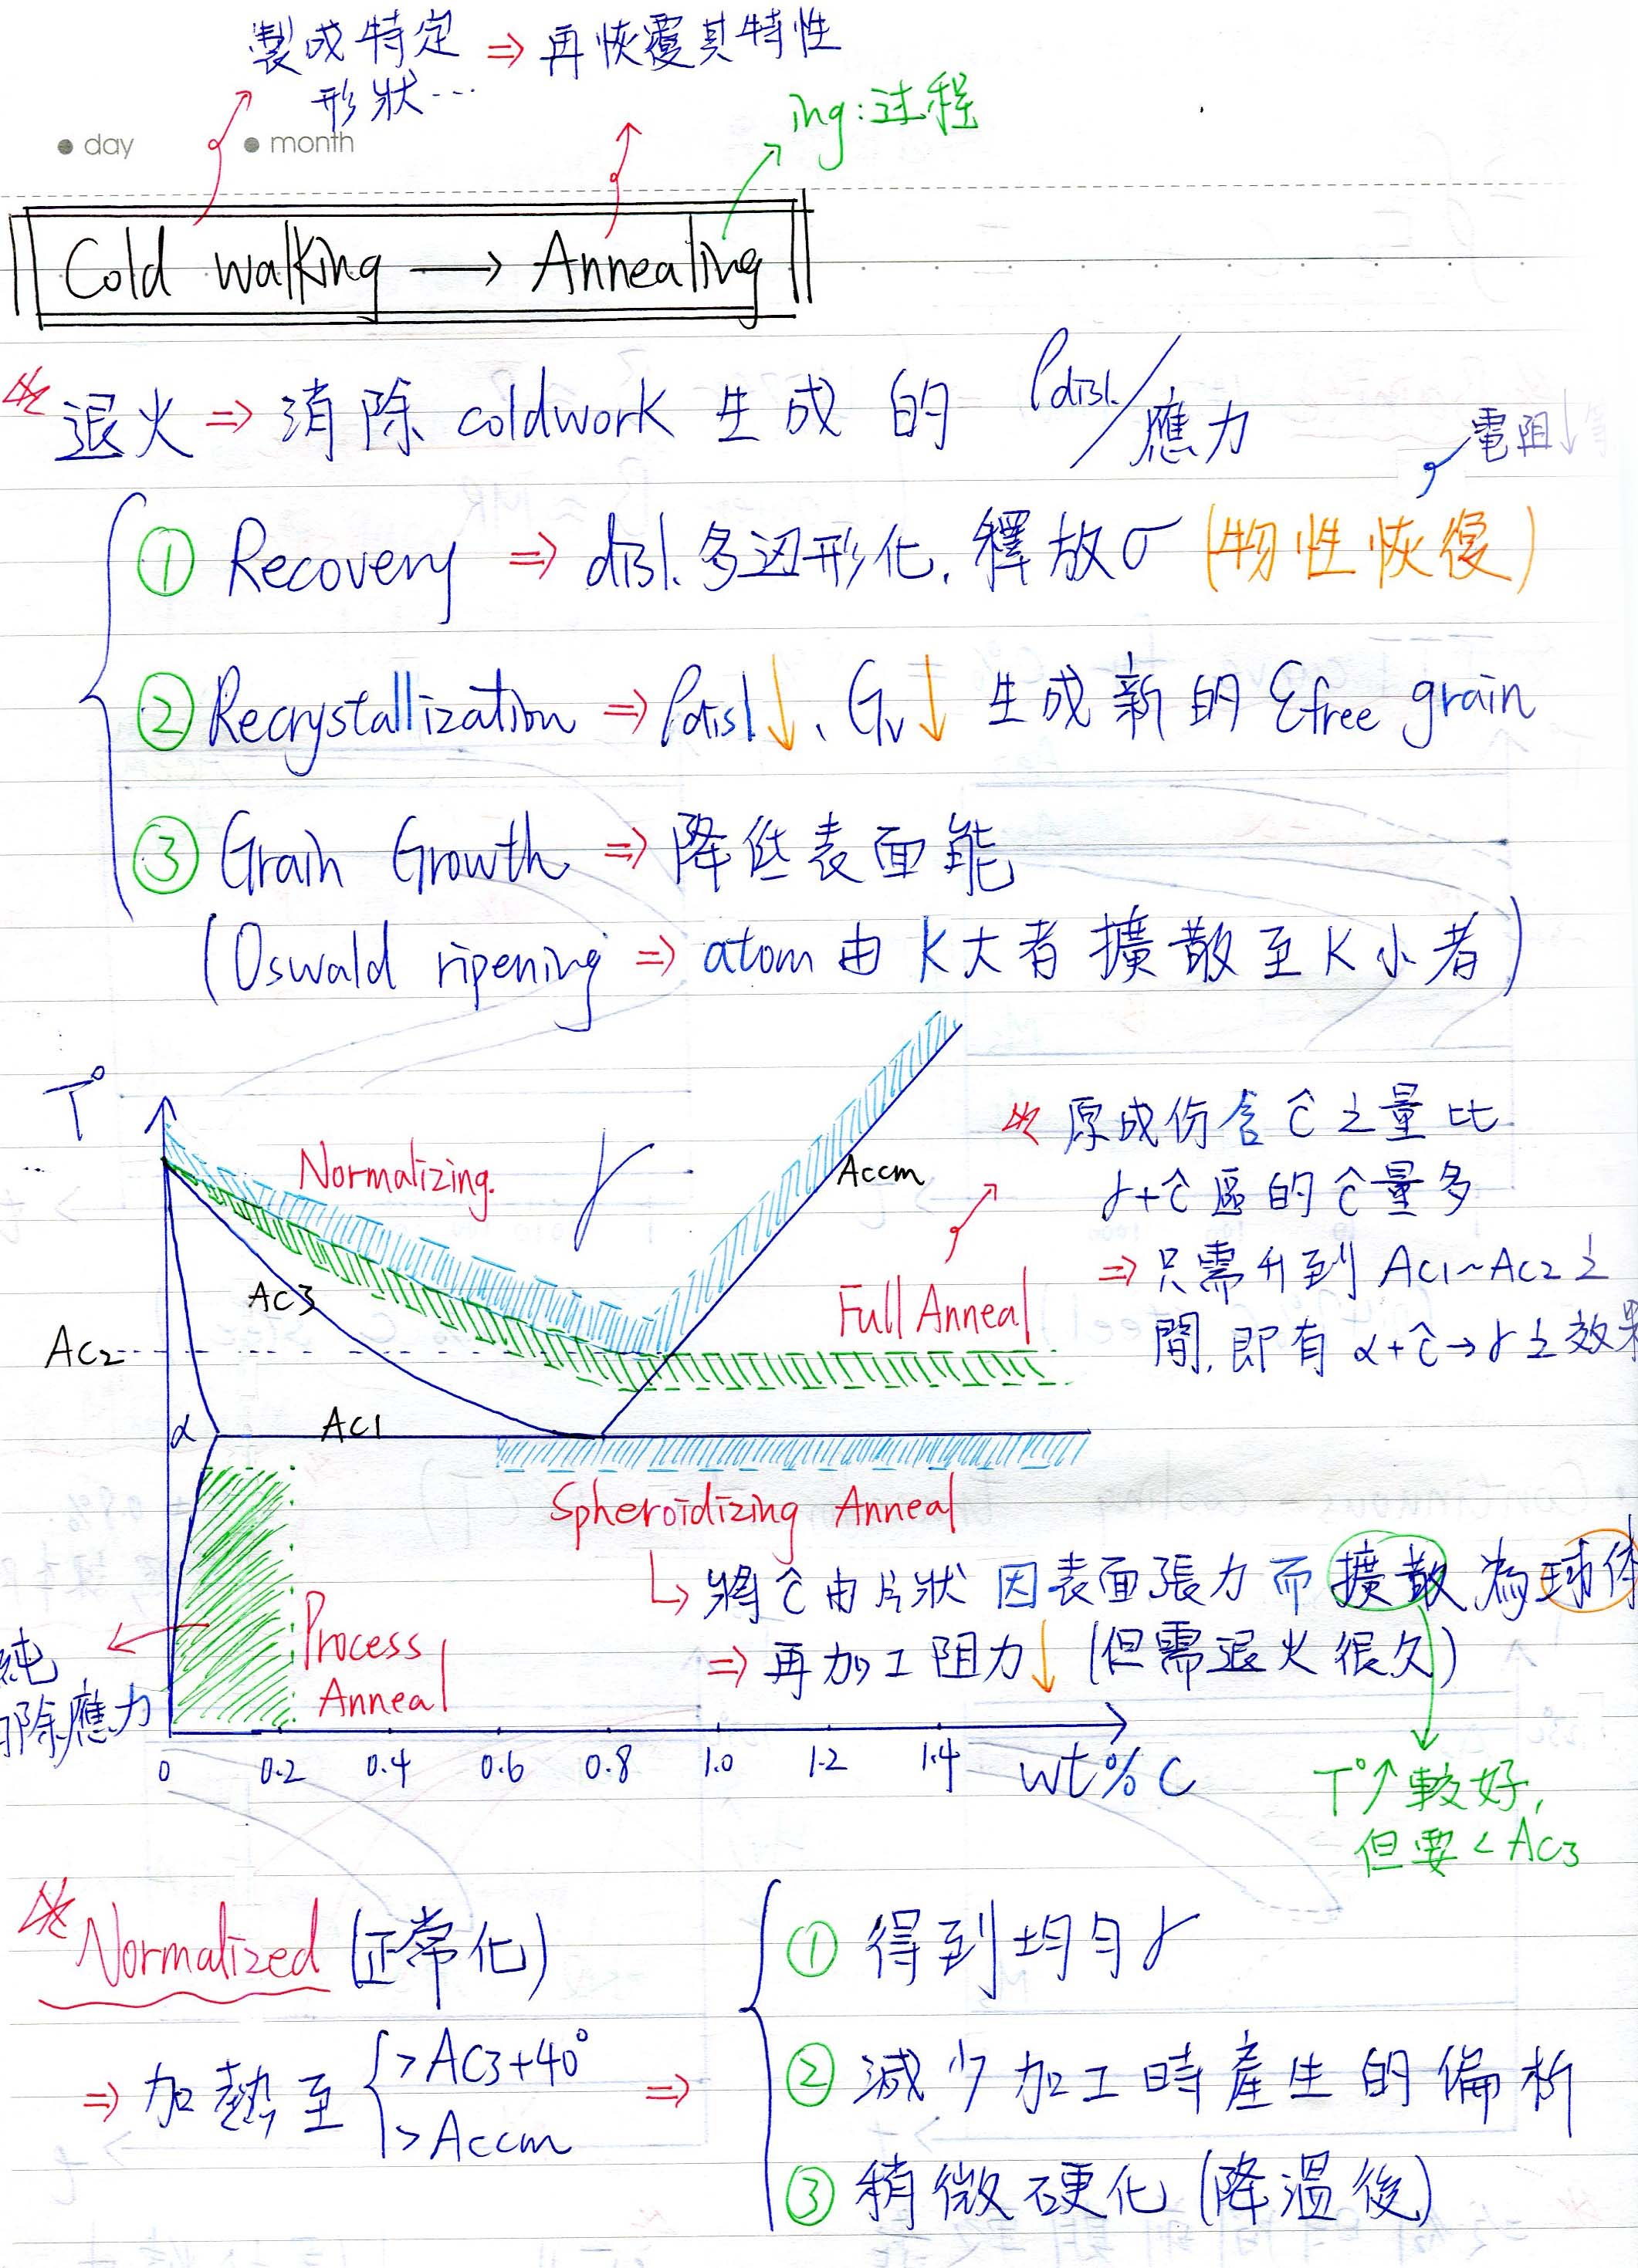 製成特定 ⇒ 再恢覆其特性
形狀…
ing:过程
day month
Cold walking → Annealing
退火 ⇒ 消除 coldwork 生成的 ρdisl. / 應力
電阻↓
① Recovery ⇒ disl. 多边形化, 釋放σ (物性恢復)
② Recrystallization ⇒ ρdisl↓、Gv↓ 生成新的 εfree grain
③ Grain Growth ⇒ 降低表面能
(Oswald ripening ⇒ atom 由 K大者擴散至K小者)
T°
Normalizing. γ
Accm
Ac3
Full Anneal
Ac2
α
Ac1
原成份含Ĉ之量比
γ+Ĉ區的Ĉ量多
⇒ 只需升到 Ac1~Ac2之
間, 即有 α+Ĉ→γ之效果
Spheroidizing Anneal
↳ 將Ĉ由片狀因表面張力而擴散為球体
⇒ 再加工阻力↓ (但需退火很久)
Process
Anneal
純
消除應力
0 0.2 0.4 0.6 0.8 1.0 1.2 1.4 wt% C
T°↑較好,
但要<Ac3
Normalized (正常化)
⇒ 加熱至 { >Ac3+40°
>Accm ⇒
① 得到均勻γ
② 減少加工時產生的偏析
③ 稍微硬化 (降溫後)